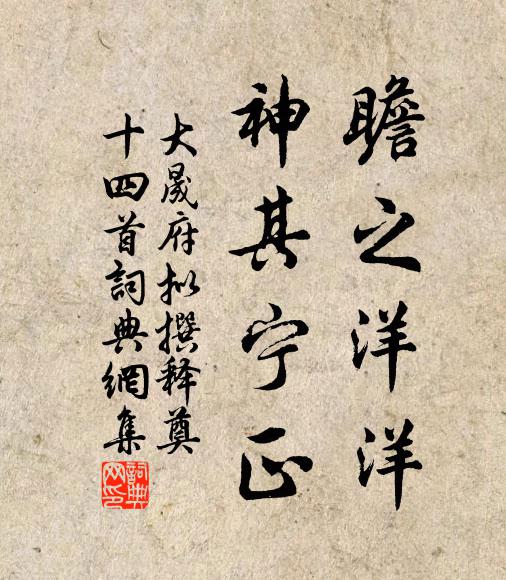 瞻之洋洋
神其宁止
大晟府拟撰释奠
十四首詞典網集
詞典網印